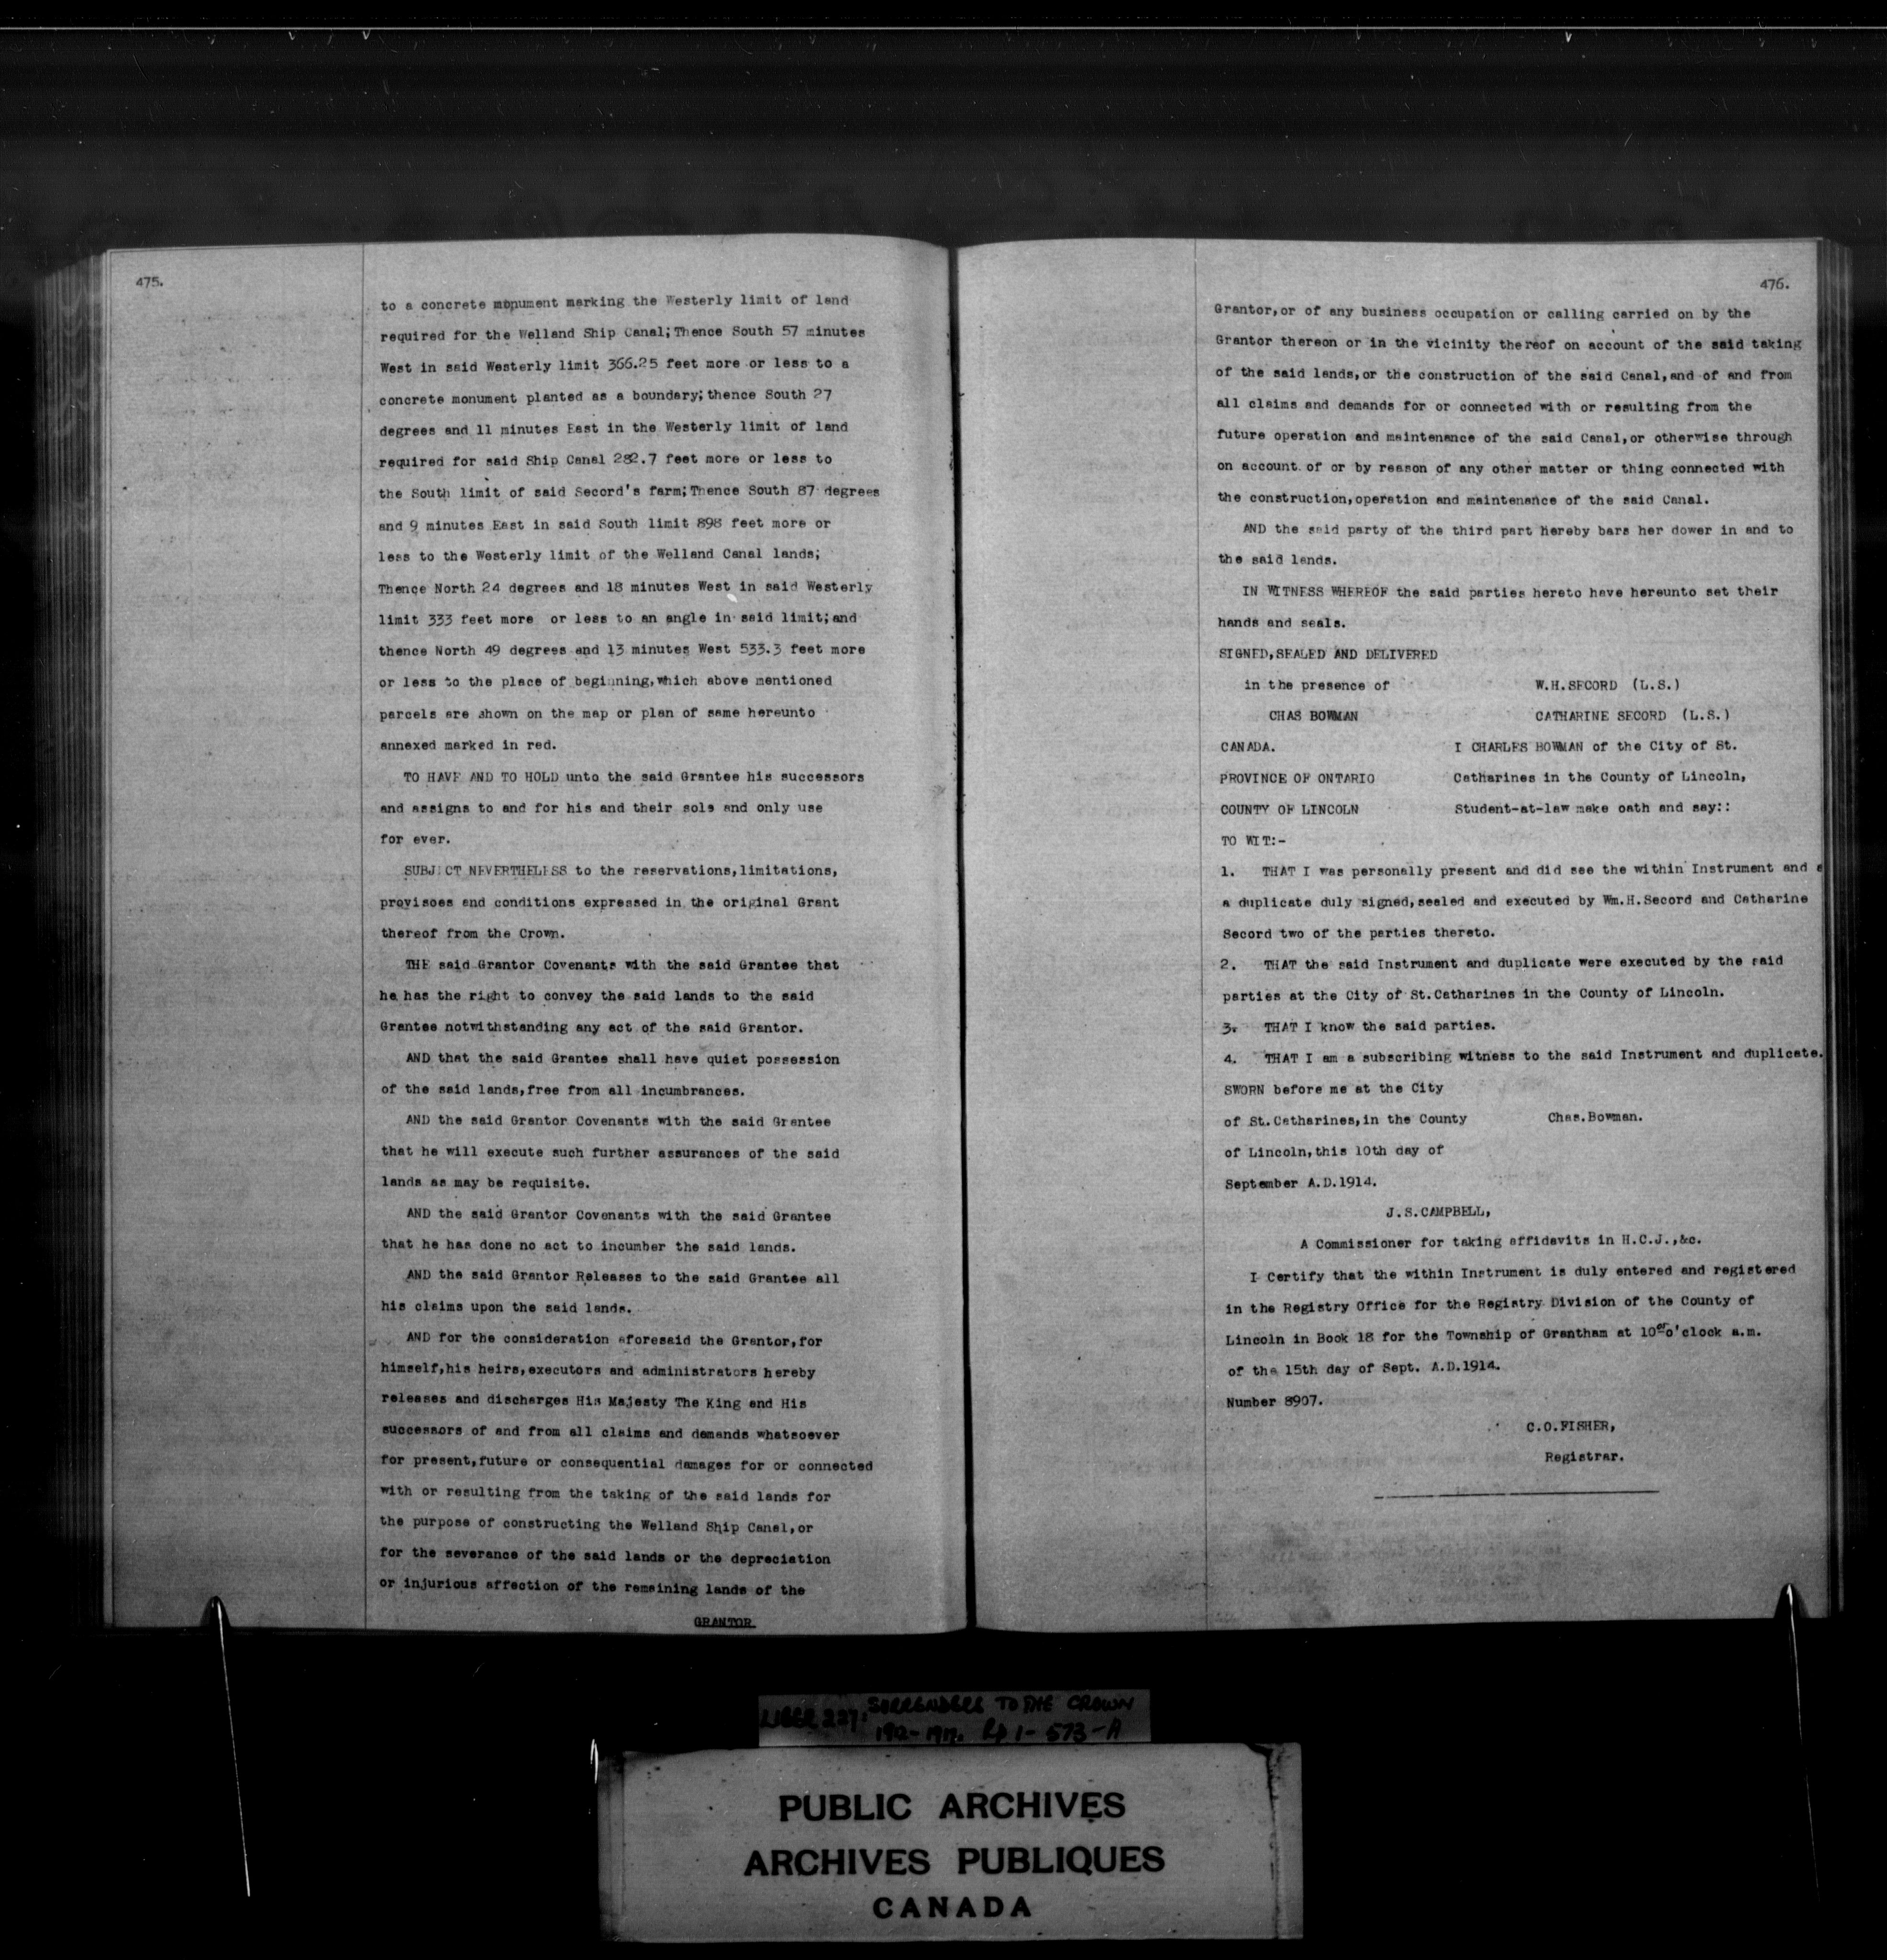 475.
to a concrete monument marking the Westerly limit of land
required for the Welland Ship Canal;Thence South 57 minutes
West in said Westerly limit 366.25 feet more or less to a
concrete monument planted as a boundary;thence South 27
degrees and 11 minutes East in the Westerly limit of land
required for said Ship Canal 282.7 feet more or less to
the South limit of said Secord's farm;Thence South 87 degrees
and 9 minutes East in said South limit 898 feet more or
less to the Westerly limit of the Welland Canal lands;
Thence North 24 degrees and 18 minutes West in said Westerly
limit 333 feet more or less to an angle in said limit;and
thence North 49 degrees and 13 minutes West 533.3 feet more
or less to the place of beginning,which above mentioned
parcels are shown on the map or plan of same hereunto
annexed marked in red.
TO HAVE AND TO HOLD unto the said Grantee his successors
and assigns to and for his and their sole and only use
for ever.
SUBJECT NEVERTHELESS to the reservations,limitations,
provisoes and conditions expressed in the original Grant
thereof from the Crown.
THE said Grantor Covenants with the said Grantee that
he has the right to convey the said lands to the said
Grantee notwithstanding any act of the said Grantor.
AND that the said Grantee shall have quiet possession
of the said lands,free from all incumbrances.
AND the said Grantor Covenants with the said Grantee
that he will execute such further assurances of the said
lands as may be requisite.
AND the said Grantor Covenants with the said Grantee
that he has done no act to incumber the said lands.
AND the said Grantor Releases to the said Grantee all
his claims upon the said lands.
AND for the consideration aforesaid the Grantor,for
himself,his heirs,executors and administrators hereby
releases and discharges His Majesty The King and His
successors of and from all claims and demands whatsoever
for present,future or consequential damages for or connected
with or resulting from the taking of the said lands for
the purpose of constructing the Welland Ship Canal,or
for the severance of the said lands or the depreciation
or injurious affection of the remaining lands of the
GRANTOR
476.
Grantor,or of any business occupation or calling carried on by the
Grantor thereon or in the vicinity thereof on account of the said taking
of the said lands,or the construction of the said Canal,and of and from
all claims and demands for or connected with or resulting from the
future operation and maintenance of the said Canal,or otherwise through
on account of or by reason of any other matter or thing connected with
the construction,operation and maintenance of the said Canal.
AND the said party of the third part hereby bars her dower in and to
the said lands.
IN WITNESS WHEREOF the said parties hereto have hereunto set their
hands and seals.
SIGNED,SEALED AND DELIVERED
in the presence of W.H.SECORD (L.S.)
CHAS BOWMAN CATHARINE SECORD (L.S.)
CANADA. I CHARLES BOWMAN of the City of St.
PROVINCE OF ONTARIO Catharines in the County of Lincoln,
COUNTY OF LINCOLN Student-at-law make oath and say::
TO WIT:-
1. THAT I was personally present and did see the within Instrument and a
a duplicate duly signed,sealed and executed by Wm.H.Secord and Catharine
Secord two of the parties thereto.
2. THAT the said Instrument and duplicate were executed by the said
parties at the City of St.Catharines in the County of Lincoln.
3. THAT I know the said parties.
4. THAT I am a subscribing witness to the said Instrument and duplicate.
SWORN before me at the City
of St.Catharines,in the County Chas.Bowman.
of Lincoln,this 10th day of
September A.D.1914.
J.S.CAMPBELL,
A Commissioner for taking affidavits in H.C.J.,&c.
I Certify that the within Instrument is duly entered and registered
in the Registry Office for the Registry Division of the County of
Lincoln in Book 18 for the Township of Grantham at 10 o'clock a.m.
of the 15th day of Sept. A.D.1914.
Number 8907.
C.O.FISHER,
Registrar.
LIBER 227: SURRENDERS TO THE CROWN
1-573-A
PUBLIC ARCHIVES
ARCHIVES PUBLIQUES
CANADA